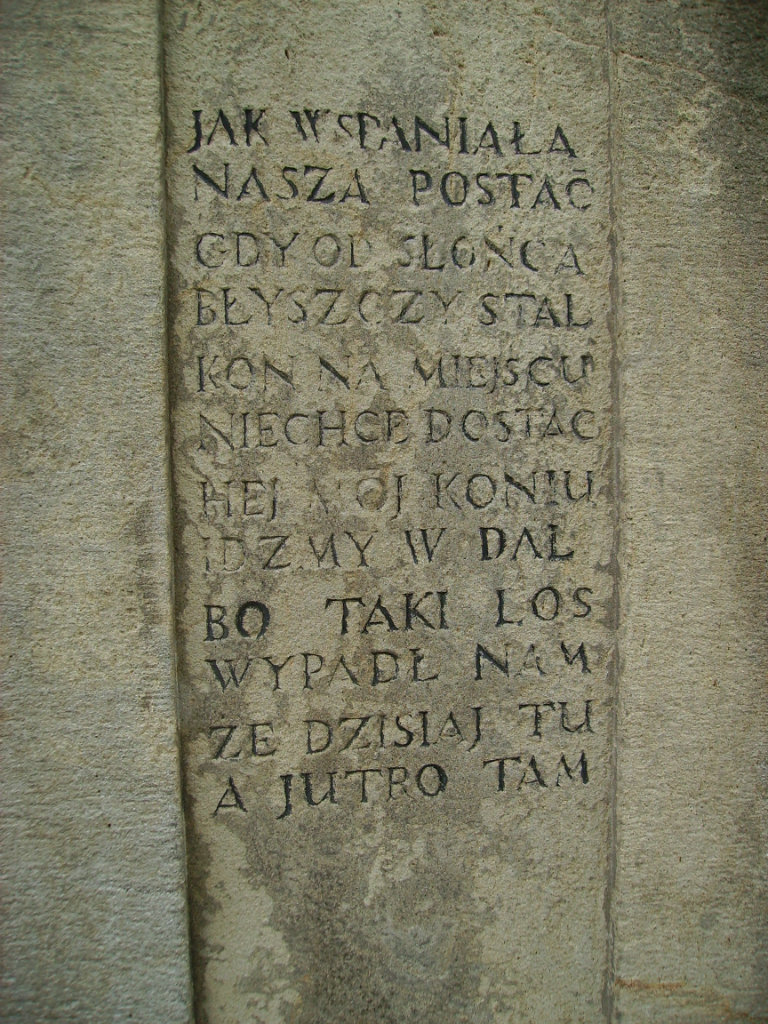 JAK WSPANIAŁA
NASZA POSTAĆ
GDY OD SŁOŃCA
BŁYSZCZY STAL
KOŃ NA MIEJSCU
NIECHCE DOSTAĆ
HEJ MÓJ KONIU
IDZMY W DAL
BO TAKI LOS
WYPADŁ NAM
ŻE DZISIAJ TU
A JUTRO TAM